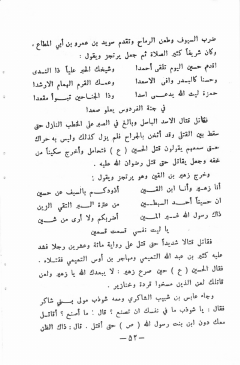 ضرب السيوف وطعن الرماح وتقدم سويد بن عمرو بن أبي المطاع .
وكان شريفاً كثير الصلاة ثم جعل يرتجز ويقول :
اقدم حسين اليوم تلقى أحمدا وشيخك الحبر علياً ذا الندى
وحسناً كالبدر وافى الأسعدا وعمك القرم الهمام الارشدا
حمزة ليث الله يدعى اسدا وذا الجناحين تبوأ مقعدا
في جنة الفردوس يعلو صعدا
فقاتل قتال الاسد الباسل وبالغ في الصبر على الخطب النازل حتى
سقط بين القتلى وقد أثخن بالجراح فلم يزل كذلك وليس به حراك
حتى سمعهم يقولون قتل الحسين ( ع ) فتحامل وأخرج سكيناً من
خفه وجعل يقاتل حتى قتل رضوان الله عليه .
وخرج زهير بن القين وهو يرتجز ويقول :
أنا زهير وأنا ابن القين أذودكم بالسيف عن حسين
ان حسيناً أحد السبطين من عترة البر التقي الزين
ذاك رسول الله غير المين أضربكم ولا أرى من شين
يا ليت نفسي قسمت قسمين
فقاتل قتالا شديداً حتى قتل على رواية مائة وعشرين رجلا فشد
عليه كثير بن عبد الله الشعبي ومهاجر بن أوس التميمي فقتلاه .
فقال الحسين ( ع ) حين صرع زهير : لا يبعدك الله يا زهير ولعن
قاتلك لعن الذين مسخوا قردة وخنازير .
وجاء عابس بن شبيب الشاكري ومعه شوذب مولى بني شاكر
فقال : يا شوذب ما في نفسك ان تصنع ؟ قال : ما أصنع ؟ أقاتل
معك دون ابن بنت رسول الله ( ص ) حتى أقتل . قال : ذاك الظن
— ٥٣ —